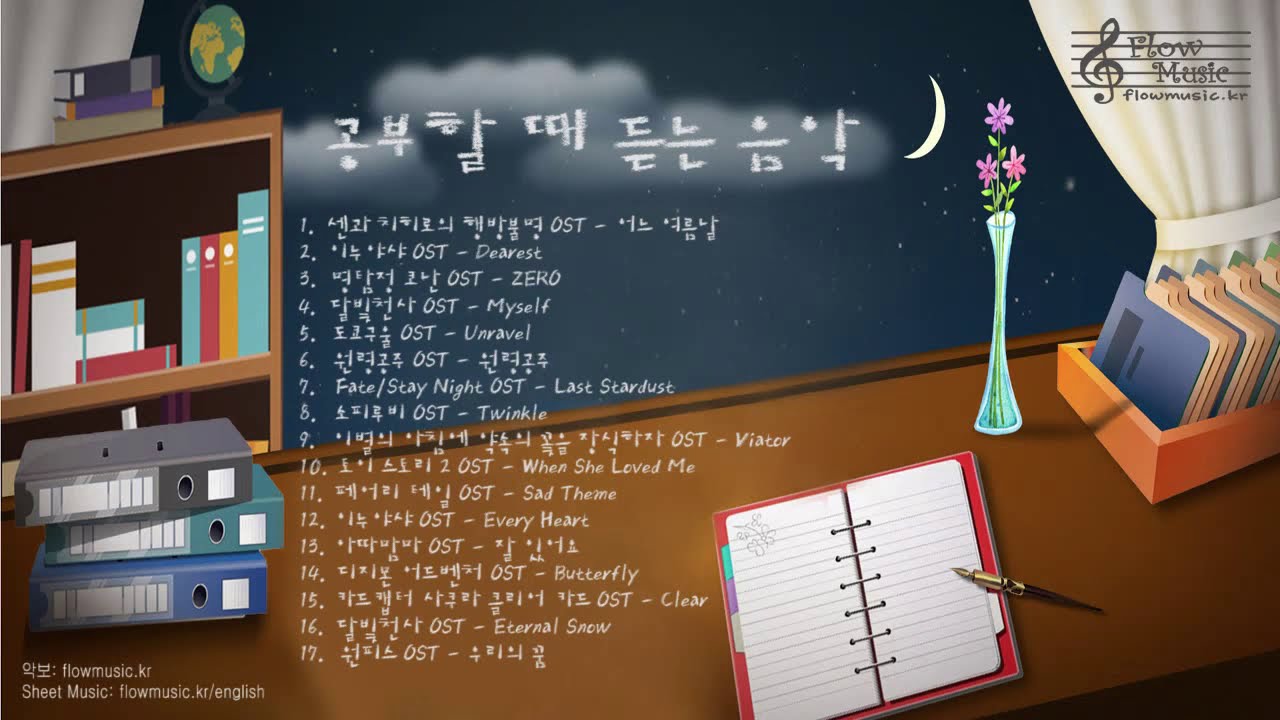 Flow
Music
flowmusic.kr
공부할 때 듣는 음악
1. 센과 치히로의 행방불명 OST - 어느 여름날
2. 이누야샤 OST - Dearest
3. 명탐정 코난 OST - ZERO
4. 달빛천사 OST - Myself
5. 도쿄구울 OST - Unravel
6. 원령공주 OST - 원령공주
7. Fate/Stay Night OST - Last Stardust
8. 소피루비 OST - Twinkle
9. 이별의 아침에 약속의 꽃을 장식하자 OST - Viator
10. 토이 스토리 2 OST - When She Loved Me
11. 페어리 테일 OST - Sad Theme
12. 이누야샤 OST - Every Heart
13. 아따맘마 OST - 잘 있어요
14. 디지몬 어드벤처 OST - Butterfly
15. 카드캡터 사쿠라 클리어 카드 OST - Clear
16. 달빛천사 OST - Eternal Snow
17. 원피스 OST - 우리의 꿈
악보: flowmusic.kr
Sheet Music: flowmusic.kr/english